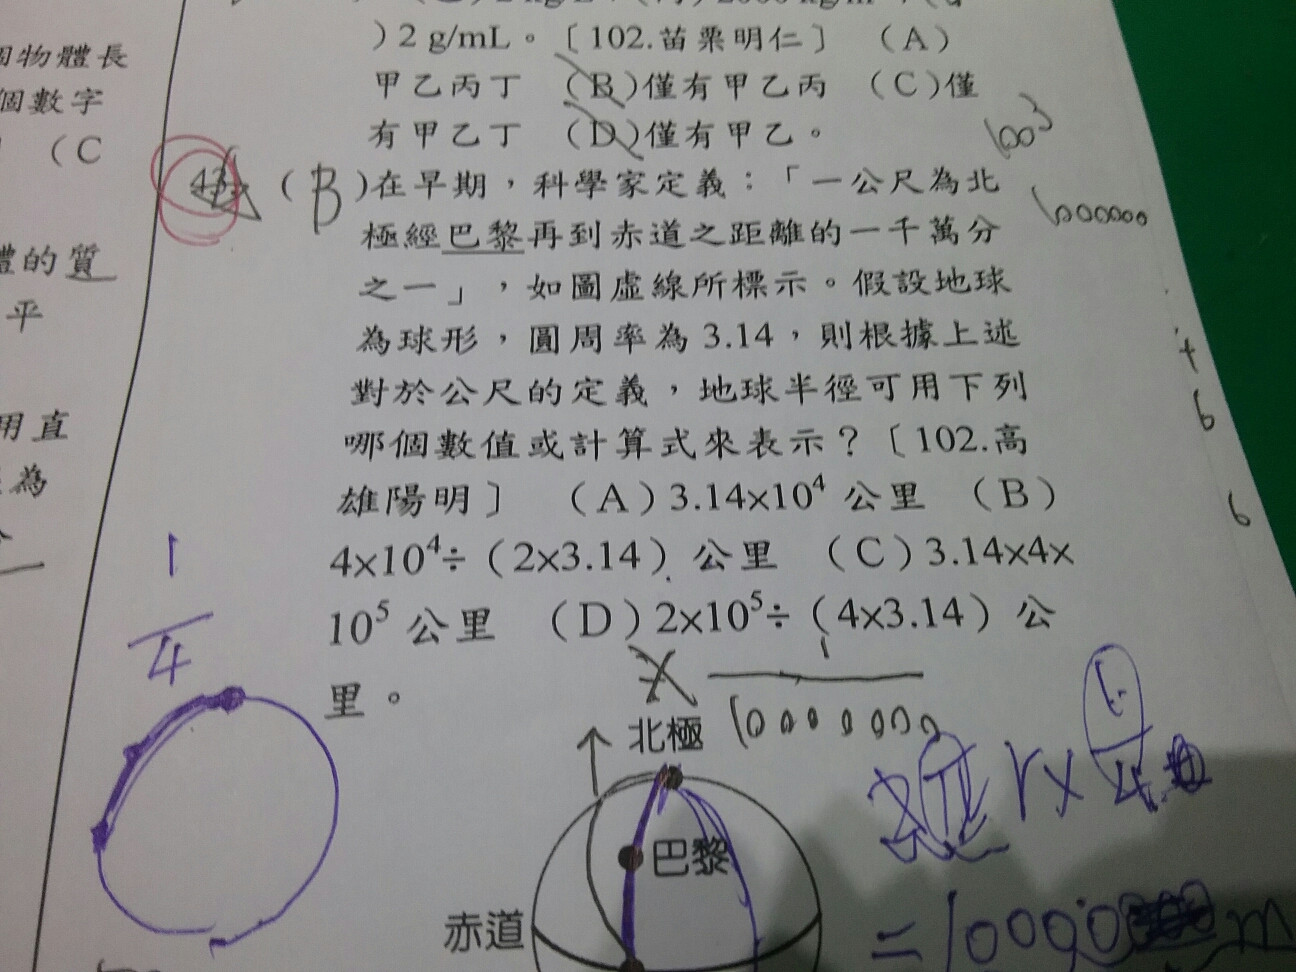 個物體長
個數字
(C
體的質
平
用直
為
)2 g/mL。〔102.苗栗明仁〕 (A)
甲乙丙丁 (B)僅有甲乙丙 (C)僅
有甲乙丁 (D)僅有甲乙。
(B)在早期,科學家定義:「一公尺為北
極經巴黎再到赤道之距離的一千萬分
之一」,如圖虛線所標示。假設地球
為球形,圓周率為 3.14,則根據上述
對於公尺的定義,地球半徑可用下列
哪個數值或計算式來表示?〔102.高
雄陽明〕 (A)3.14×10⁴ 公里 (B)
4×10⁴÷(2×3.14) 公里 (C)3.14×4×
10⁵ 公里 (D)2×10⁵÷(4×3.14) 公
里。
1000000
6
6
1
4
1
10000000
北極
巴黎
赤道
2πr×1/4